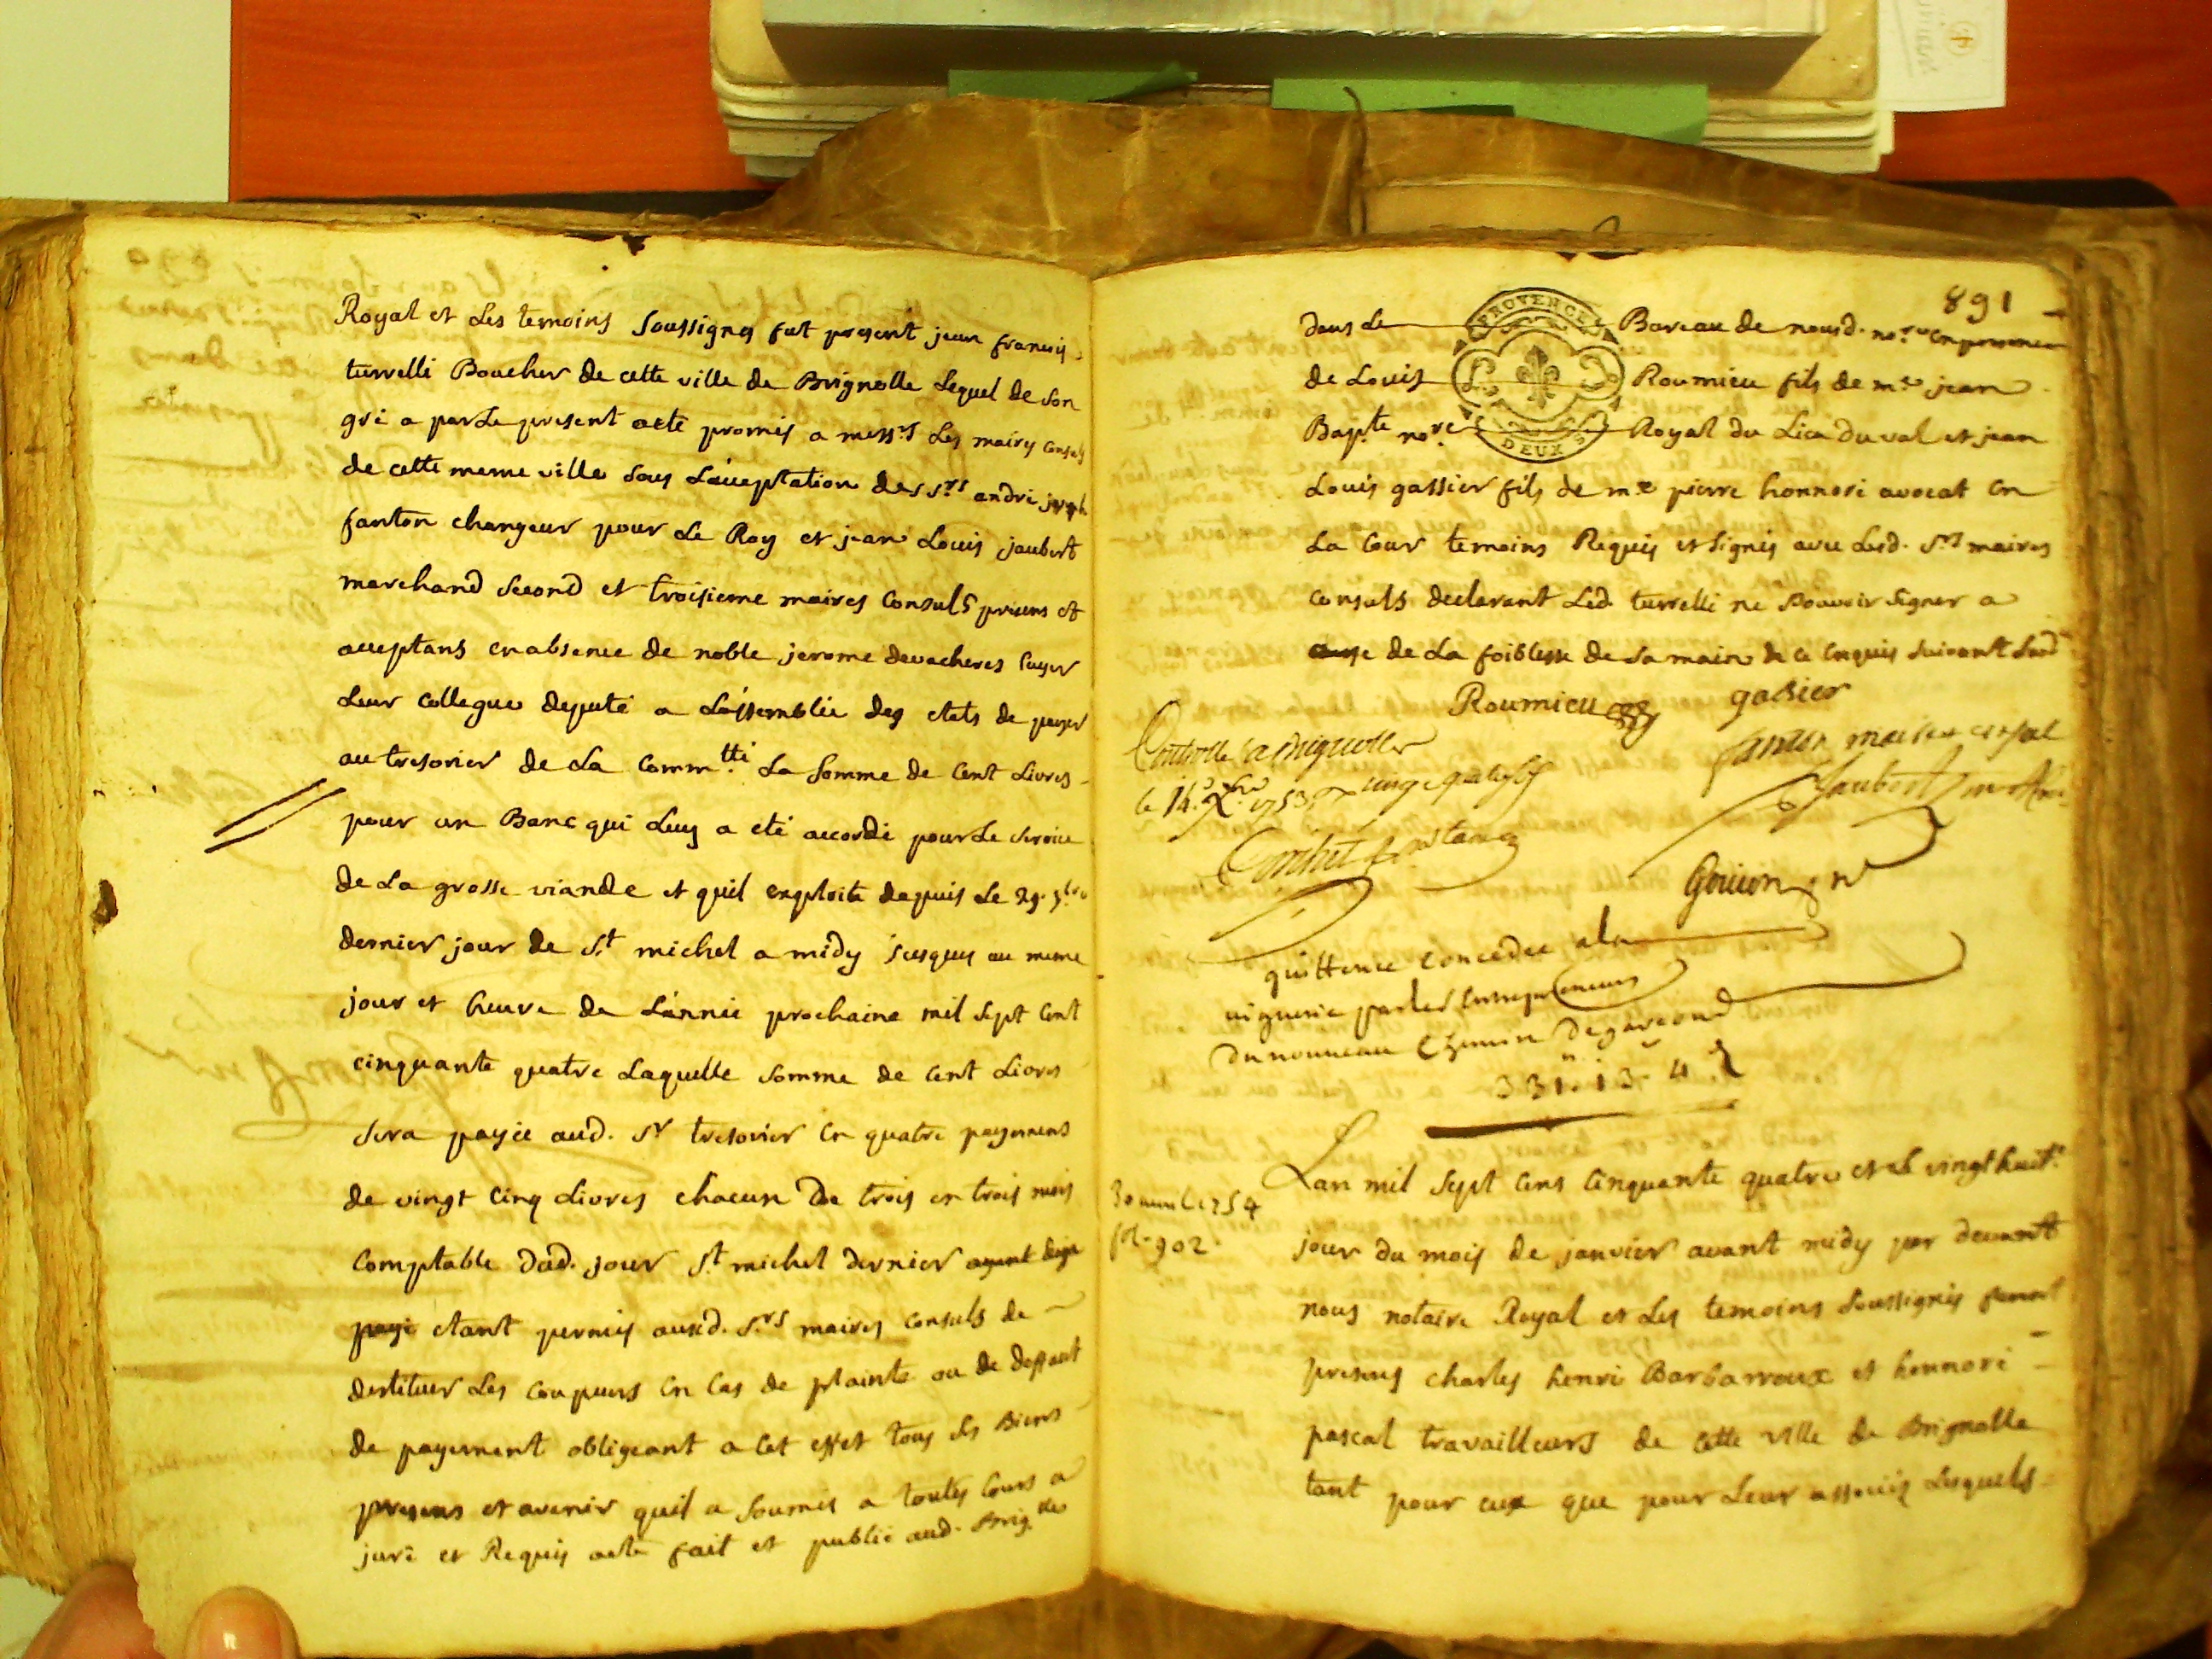 Royal et Les temoins Soussignes fut present jean francois
turrelli Boucher de cette ville de Brignolle Lequel de son
gré a par Le present acte promis a messrs Les maires Consuls
de cette meme ville sous L'aceptation des Srs andré joseph
fanton changeur pour Le Roy et jean Louis jaubert
marchand second et troisieme maires Consuls presens et
aceptans en absence de noble jerome devacheres
Leur Collegue deputé a L'assemblée des etats de payer
au tresorier de La Commtté La somme de Cent Livres
pour un Banc qui Luy a eté accordé pour Le service
de La grosse viande et quil exploite depuis Le 29.
dernier jour de St michel a midy jusques au meme
jour et heure de L'année prochaine mil sept Cent
cinquante quatre Laquelle somme de Cent Livres
sera payée aud. Sr tresorier En quatre payemens
de vingt Cinq Livres chacun de trois en trois mois
Comptable dud. jour St michel dernier ayant deja
payé etant permis auxd. Srs maires Consuls de
destituer Les Coupeurs En Cas de plainte ou de deffaut
de payement obligeant a Cet effet tous ses Biens
presens et avenir quil a soumis a toutes Cours a
juré et Requis acte fait et publié aud. Brig.lles
891
PROVENCE
DEUX S
dans Le Bareau de nousd. nore En presence
de Louis Roumieu fils de me jean
Bapte nore Royal du Lieu du val et jean
Louis gassier fils de me pierre honnoré avocat En
La Cour temoins Requis et signés avec Lesd. Srs maires
Consuls declarant Led. turrelli ne Pouvoir signer a
cause de La foiblesse de sa main de ce Enquis suivant
Roumieu gassier
Controllé a Brignolles fanton maire consul
le 14. Xbre 1753 jaubert
Goujon
quittance Concedée a la
viguerie par les Entrepreneurs
du nouveau Chemin de
331. 13. 4
Lan mil sept Cens Cinquante quatre et le vingt huit
30 1754
fol. 902
jour du mois de janvier avant midy par devant
nous notaire Royal et Les temoins Soussignés furent
presens charles henri Barbarroux et honnoré
pascal travailleurs de Cette ville de Brignolle
tant pour eux que pour Leur associés Lesquels